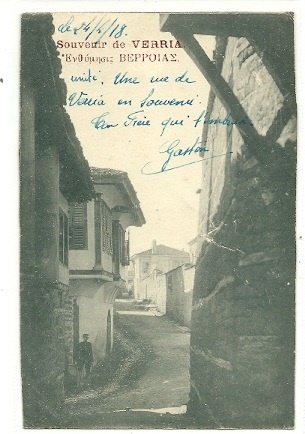 le 24/4/18.
Souvenir de VERRIA
Ἐνθύμησις ΒΕΡΡΟΙΑΣ.
Une vue de
Veria en Souvenir.
qui t'embrasse
Gaston